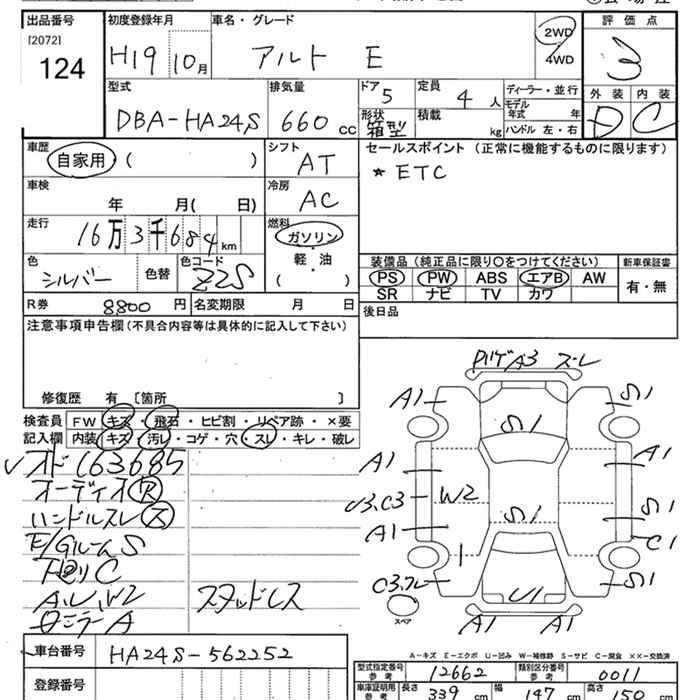 出品番号 初度登録年月 車名・グレード 評価点
[2072] 124 H19 10月 アルト E 2WD 4WD 3
型式 排気量 ドア 5 定員 4 人 ディーラー・並行 外装 内装
DBA-HA24S 660 CC 形状 箱型 積載 kg モデル年式 年 ハンドル 左・右 D C
車歴 シフト セールスポイント (正常に機能するものに限ります)
自家用 ( ) AT * ETC
車検 冷房
年 月( 日) AC
走行 燃料
16万3千684km ガソリン
軽・油
色 色コード ( )
シルバー 色替 Z2S
装備品 (純正品に限り○をつけてください) 新車保証書
PS PW ABS エアB AW 有・無
SR ナビ TV カワ
R券 8800 円 名変期限 月 日 後日品
注意事項申告欄(不具合内容等は具体的に記入して下さい)
修復歴 有 [箇所 ]
検査員 FW キズ・飛石・ヒビ割・リペア跡・×要
記入欄 内装 キズ・汚レ・コゲ・穴・スレ・キレ・破レ
オド163685
オーディオ ア
ハンドルスレ ス
E/Gルーム S
C
A.U.W2 スタッドレス
A
A3 スレ
A1 S1
A1 S1 A1
U3.C3 W2 S1
A1 S1 C1
C3. S1
スペア U1
A1 A1
A-キズ E-エクボ U-凹み W-補修跡 S-サビ C-腐食 XX-交換済
車台番号 HA24S-562252
登録番号
型式指定番号 参考 12662 類別区分番号 参考 0011
車庫証明用 参考 長さ 339 cm 幅 147 cm 高さ 150 cm